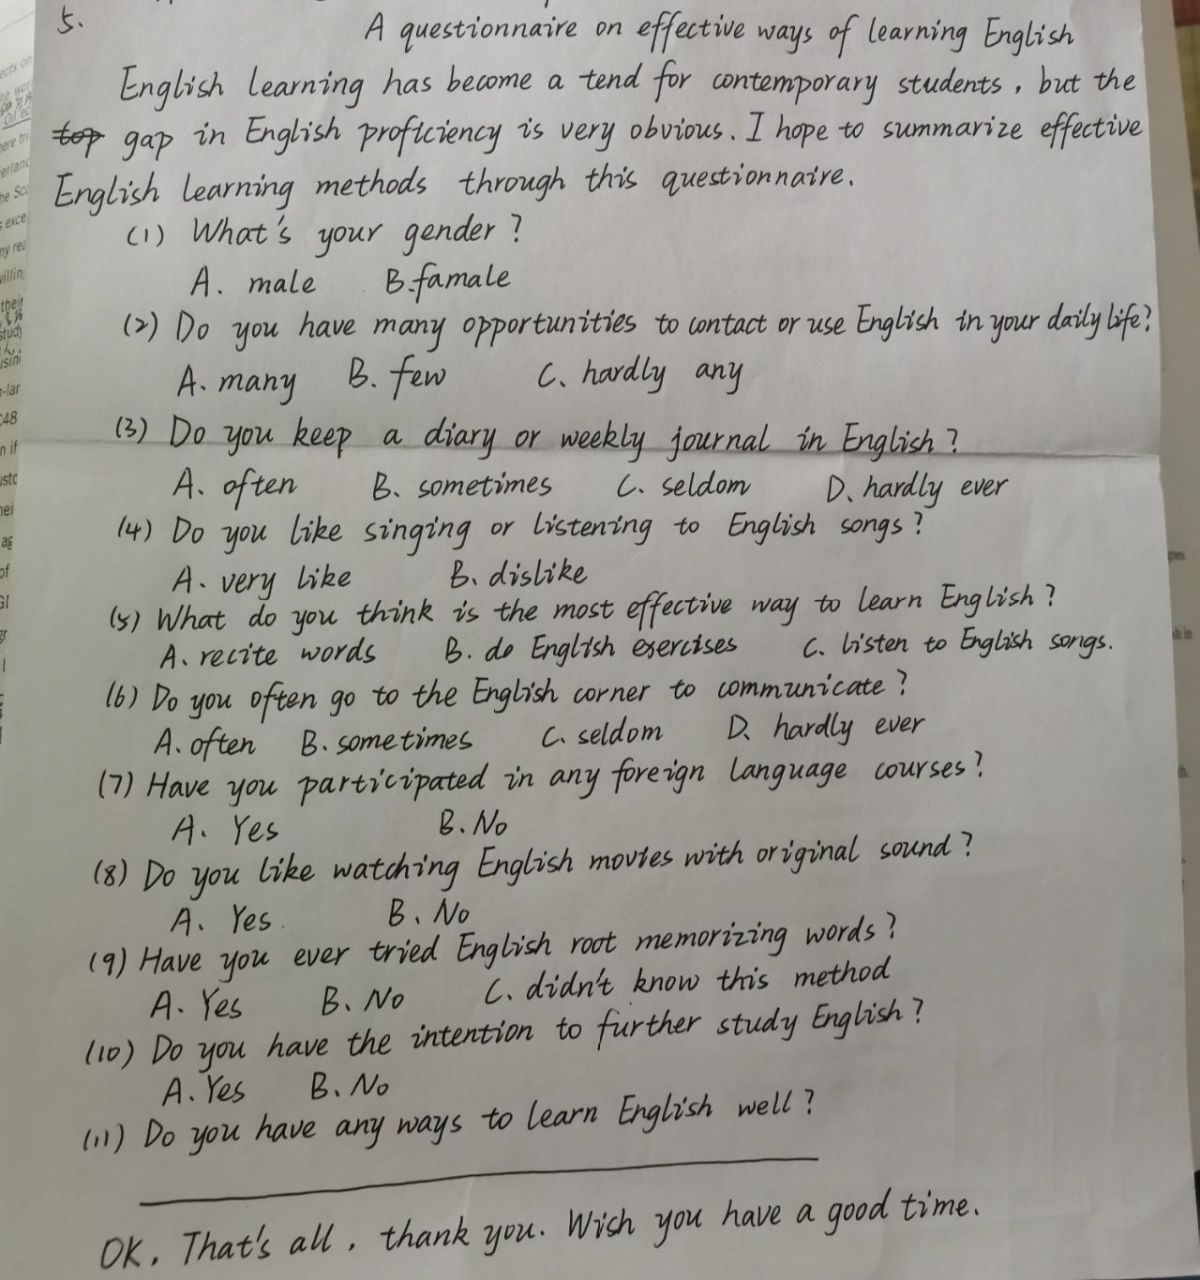 5.
A questionnaire on effective ways of learning English
English learning has become a tend for contemporary students, but the
top gap in English proficiency is very obvious. I hope to summarize effective
English learning methods through this questionnaire.
(1) What's your gender?
A. male B. famale
(2) Do you have many opportunities to contact or use English in your daily life?
A. many B. few C. hardly any
(3) Do you keep a diary or weekly journal in English?
A. often B. sometimes C. seldom D. hardly ever
(4) Do you like singing or listening to English songs?
A. very like B. dislike
(5) What do you think is the most effective way to learn English?
A. recite words B. do English exercises C. listen to English songs.
(6) Do you often go to the English corner to communicate?
A. often B. sometimes C. seldom D. hardly ever
(7) Have you participated in any foreign language courses?
A. Yes B. No
(8) Do you like watching English movies with original sound?
A. Yes. B. No
(9) Have you ever tried English root memorizing words?
A. Yes B. No C. didn't know this method
(10) Do you have the intention to further study English?
A. Yes B. No
(11) Do you have any ways to learn English well?
OK. That's all, thank you. Wish you have a good time.